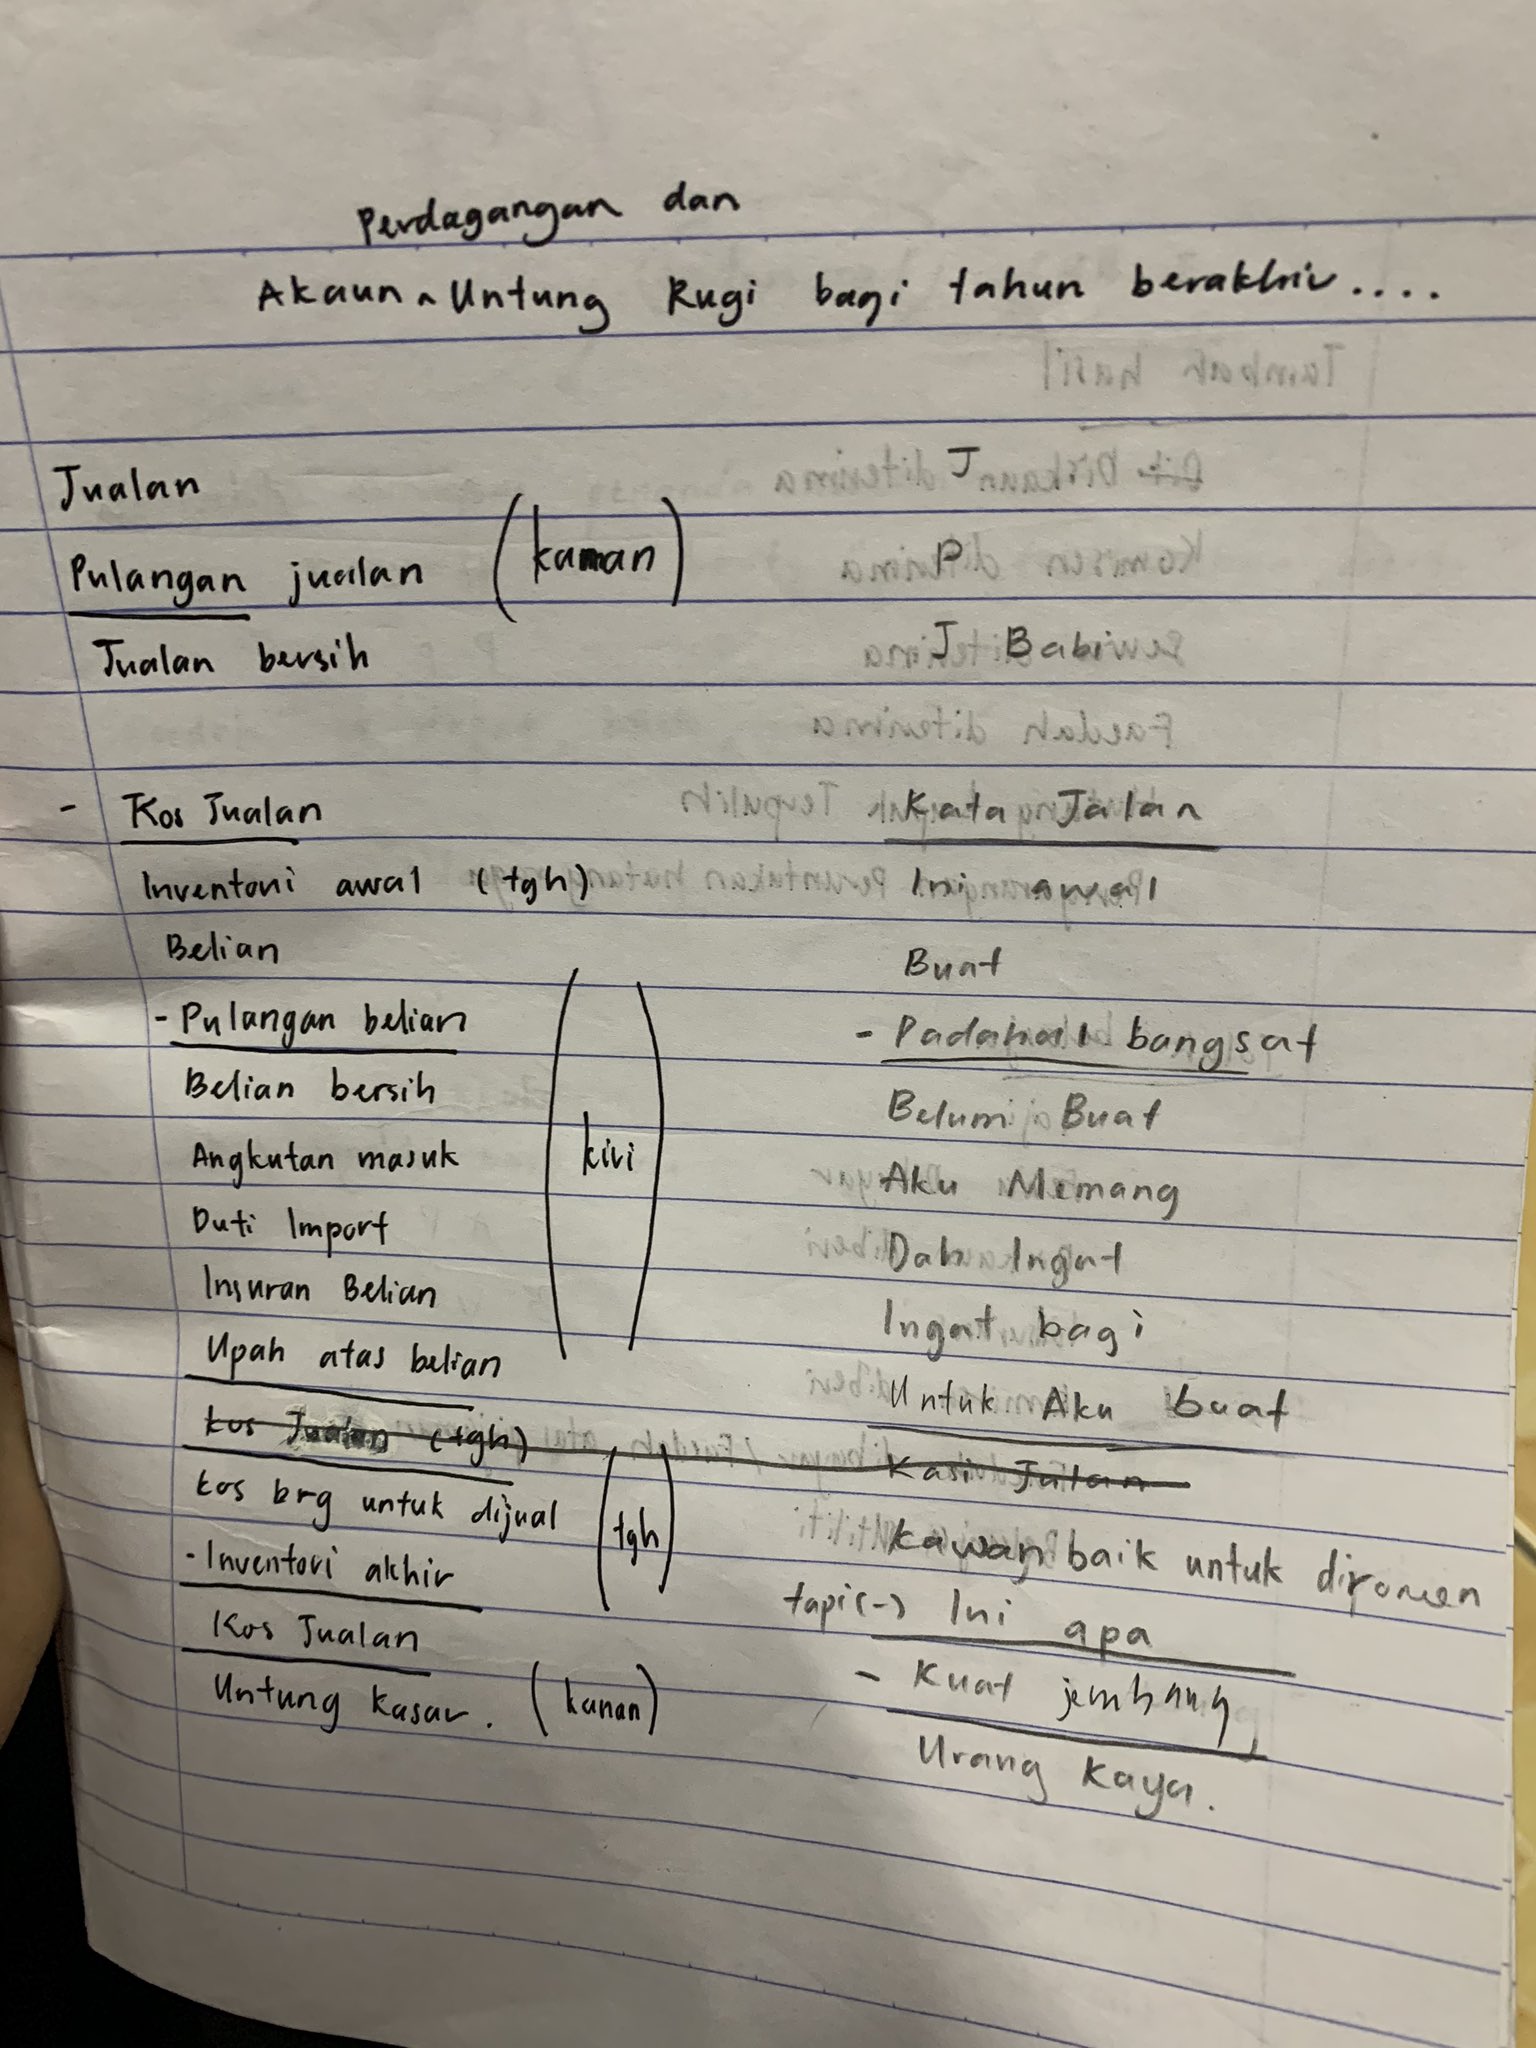 Perdagangan dan
Akaun ^ Untung Rugi bagi tahun berakhir....
Jualan J
Pulangan jualan (kanan) P
Jualan bersih J Babi
- Kos Jualan Kata Jalan
Inventori awal (tgh) Ini awal
Belian Buat
- Pulangan belian - Padahal bangsat
Belian bersih Belum Buat
Angkutan masuk kiri Aku Memang
Duti Import Dah Ingat
Insuran Belian Ingat bagi
Upah atas belian Untuk Aku buat
kos Jualan (tgh) Kasi Jalan
kos brg untuk dijual (tgh) kawan baik untuk
- Inventori akhir tapi (-) Ini apa
Kos Jualan - Kuat jembang
Untung kasar. (kanan) Urang Kaya.